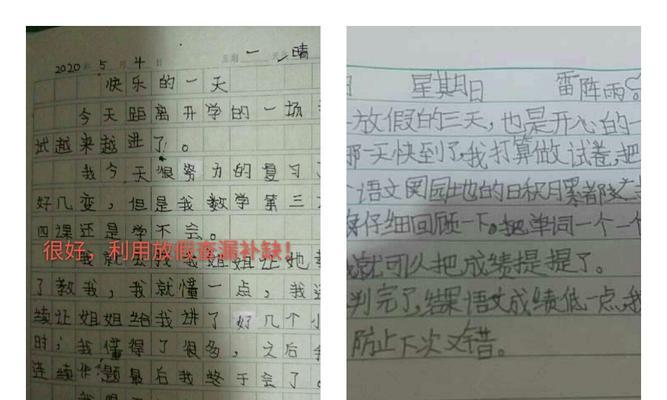 2020年5月4日 星期一 晴
快乐的一天
今天距离开学的一场考
试越来越进了。
我今天很努力的复习了
好几变，但是我数学第三
四课还是学不会。
很好，利用放假查漏补缺！
我就去找我姐姐让她教
了教我，我就懂一点，我
续让姐姐给我讲了好几个小
时；我懂得了很多，之后
连续作题最后我终于会了。
日 星期日 雷阵雨
放假的三天，也是开心的一
那一天快到了，我打算做试卷，把
语文园园土也的日积月累
仔细回顾一下。把单词一个一个
就可以把成绩提提了。
判完了，结果语文成绩低一点，我
防止下次又错。